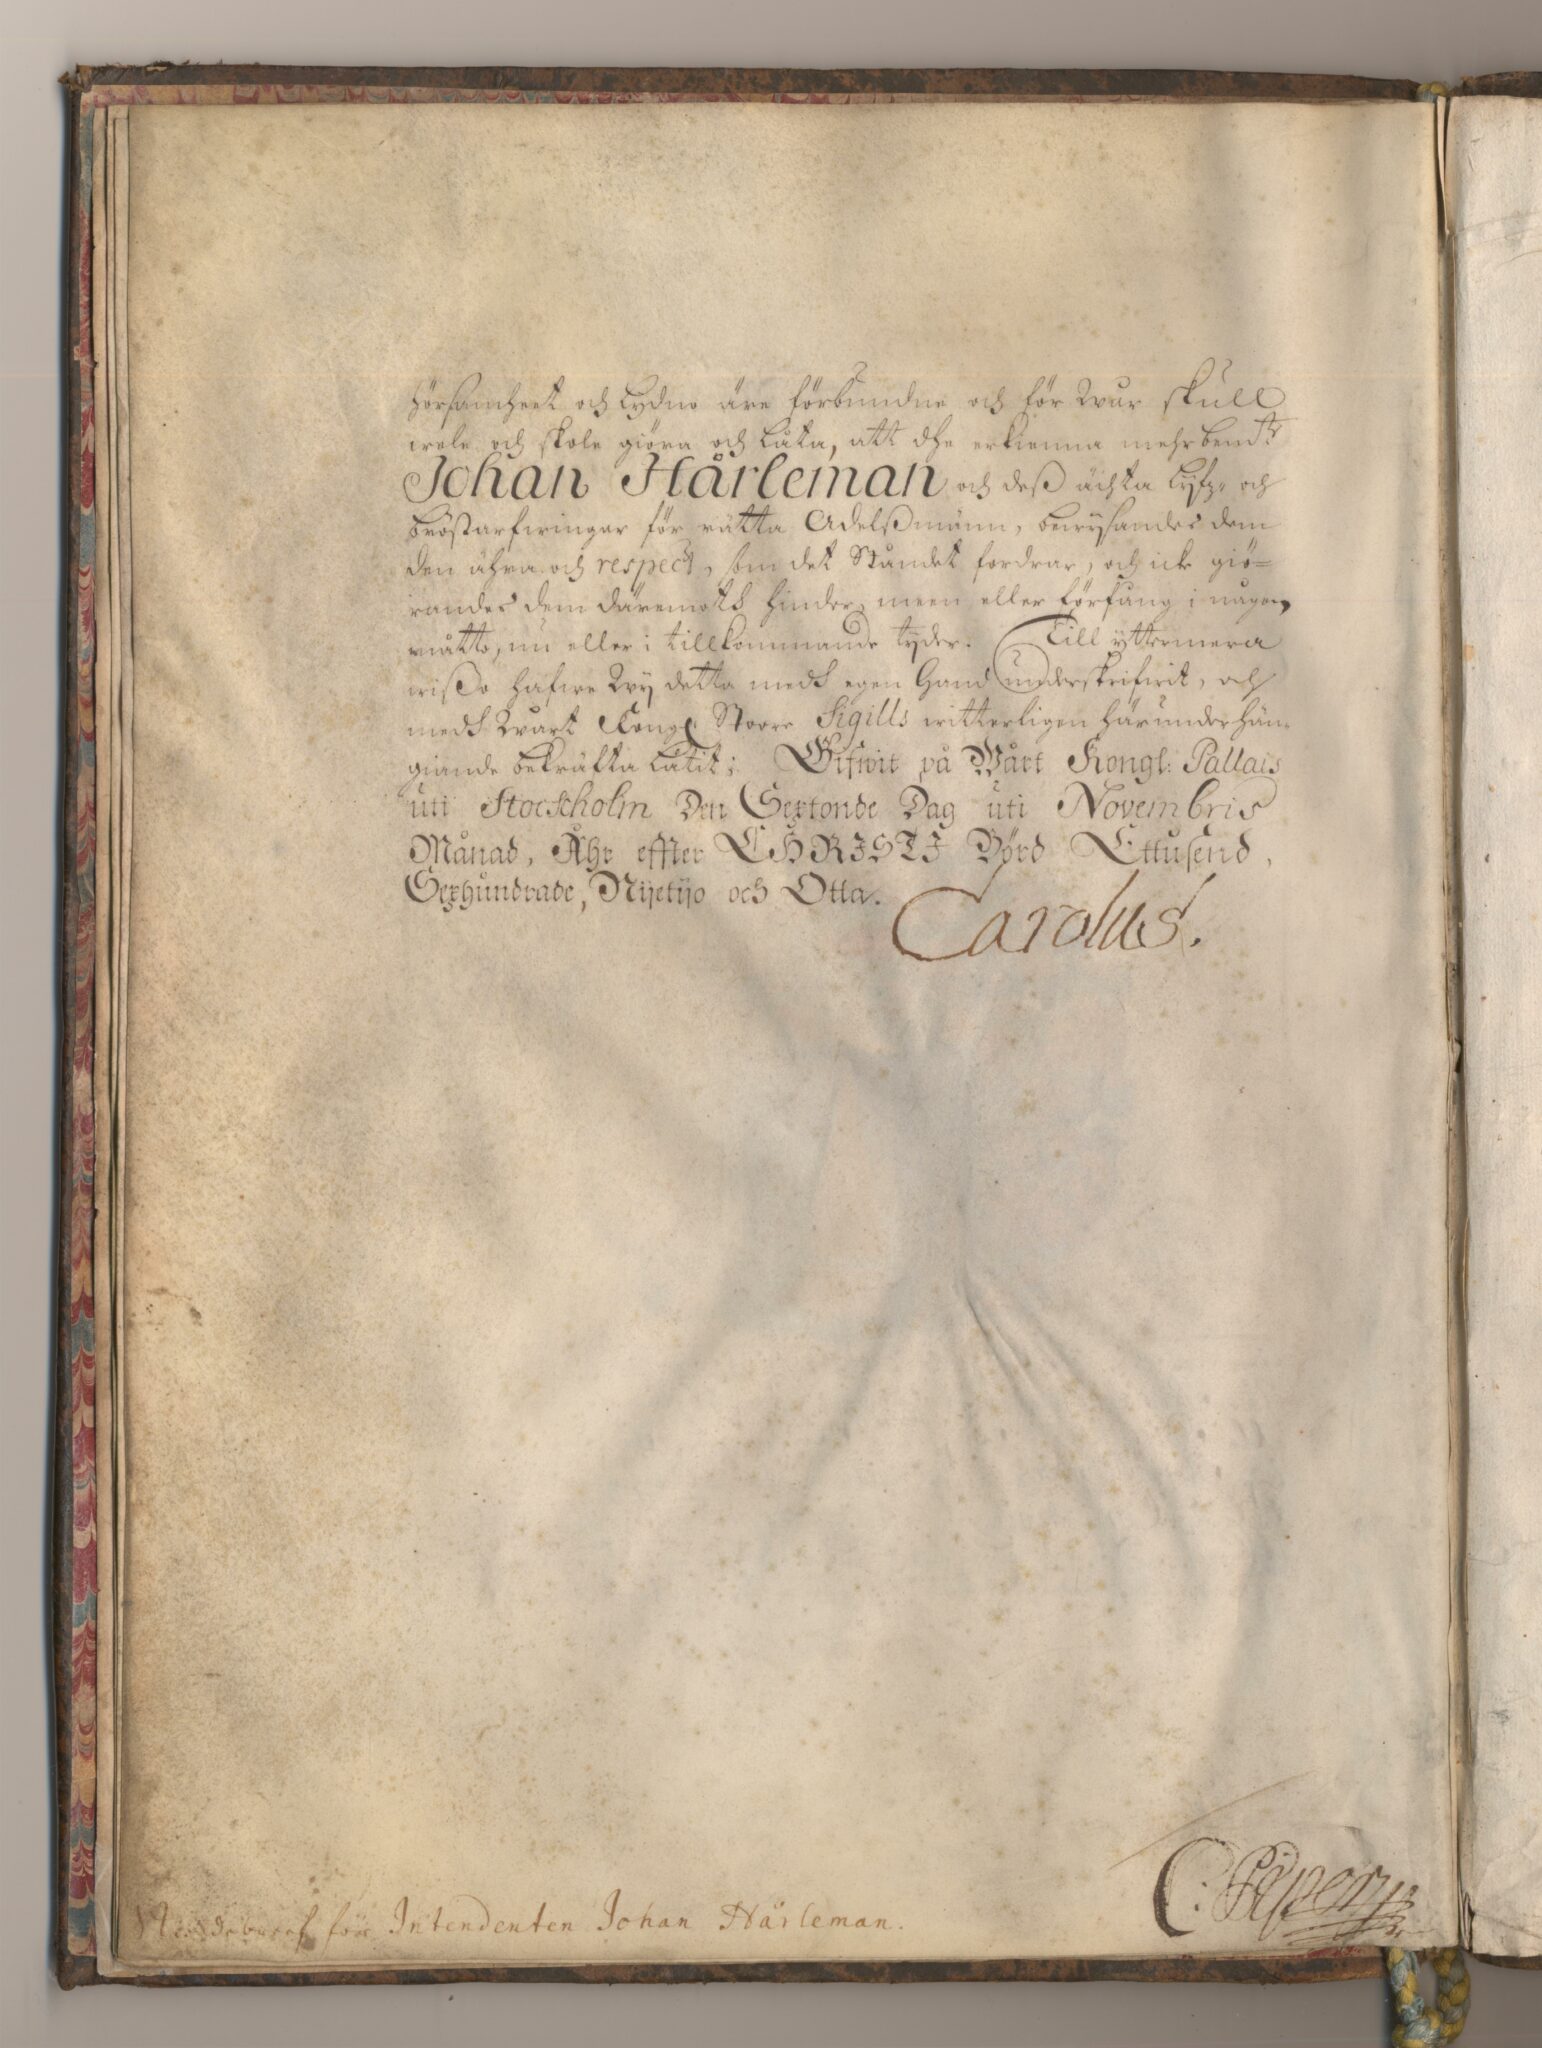 hörsamheet och Lydno äre förbundne och för Wår skull
wele och skole giöra och låta, att dhe erkienna mehrbem:te
Johan Hårleman och deß ächta Lyfz- och
bröstarfwingar för rätta Adelßmänn, bewysandes dem
den ähra och respect, som det Ståndet fordrar, och icke giö=
randes dem däremoth hinder, meen eller förfång i någon
måtto, nu eller i tillkommande tyder. Till yttermera
wißo hafwe Wy detta medh egen Hand underskrifwit, och
medh Wårt Kongl. Stoore Sigills witterligen härunderhän-
giande bekräfta låtit; Gifwit på Wårt Kongl: Pallais
uti Stockholm Den Sextonde Dag uti Novembris
Månad, Åhr effter CHRISTI Börd Ettusend,
Sexhundrade, Nijetijo och Otta.
Carolus.
C: Piper
Nåndebreef för Intendenten Johan Hårleman.